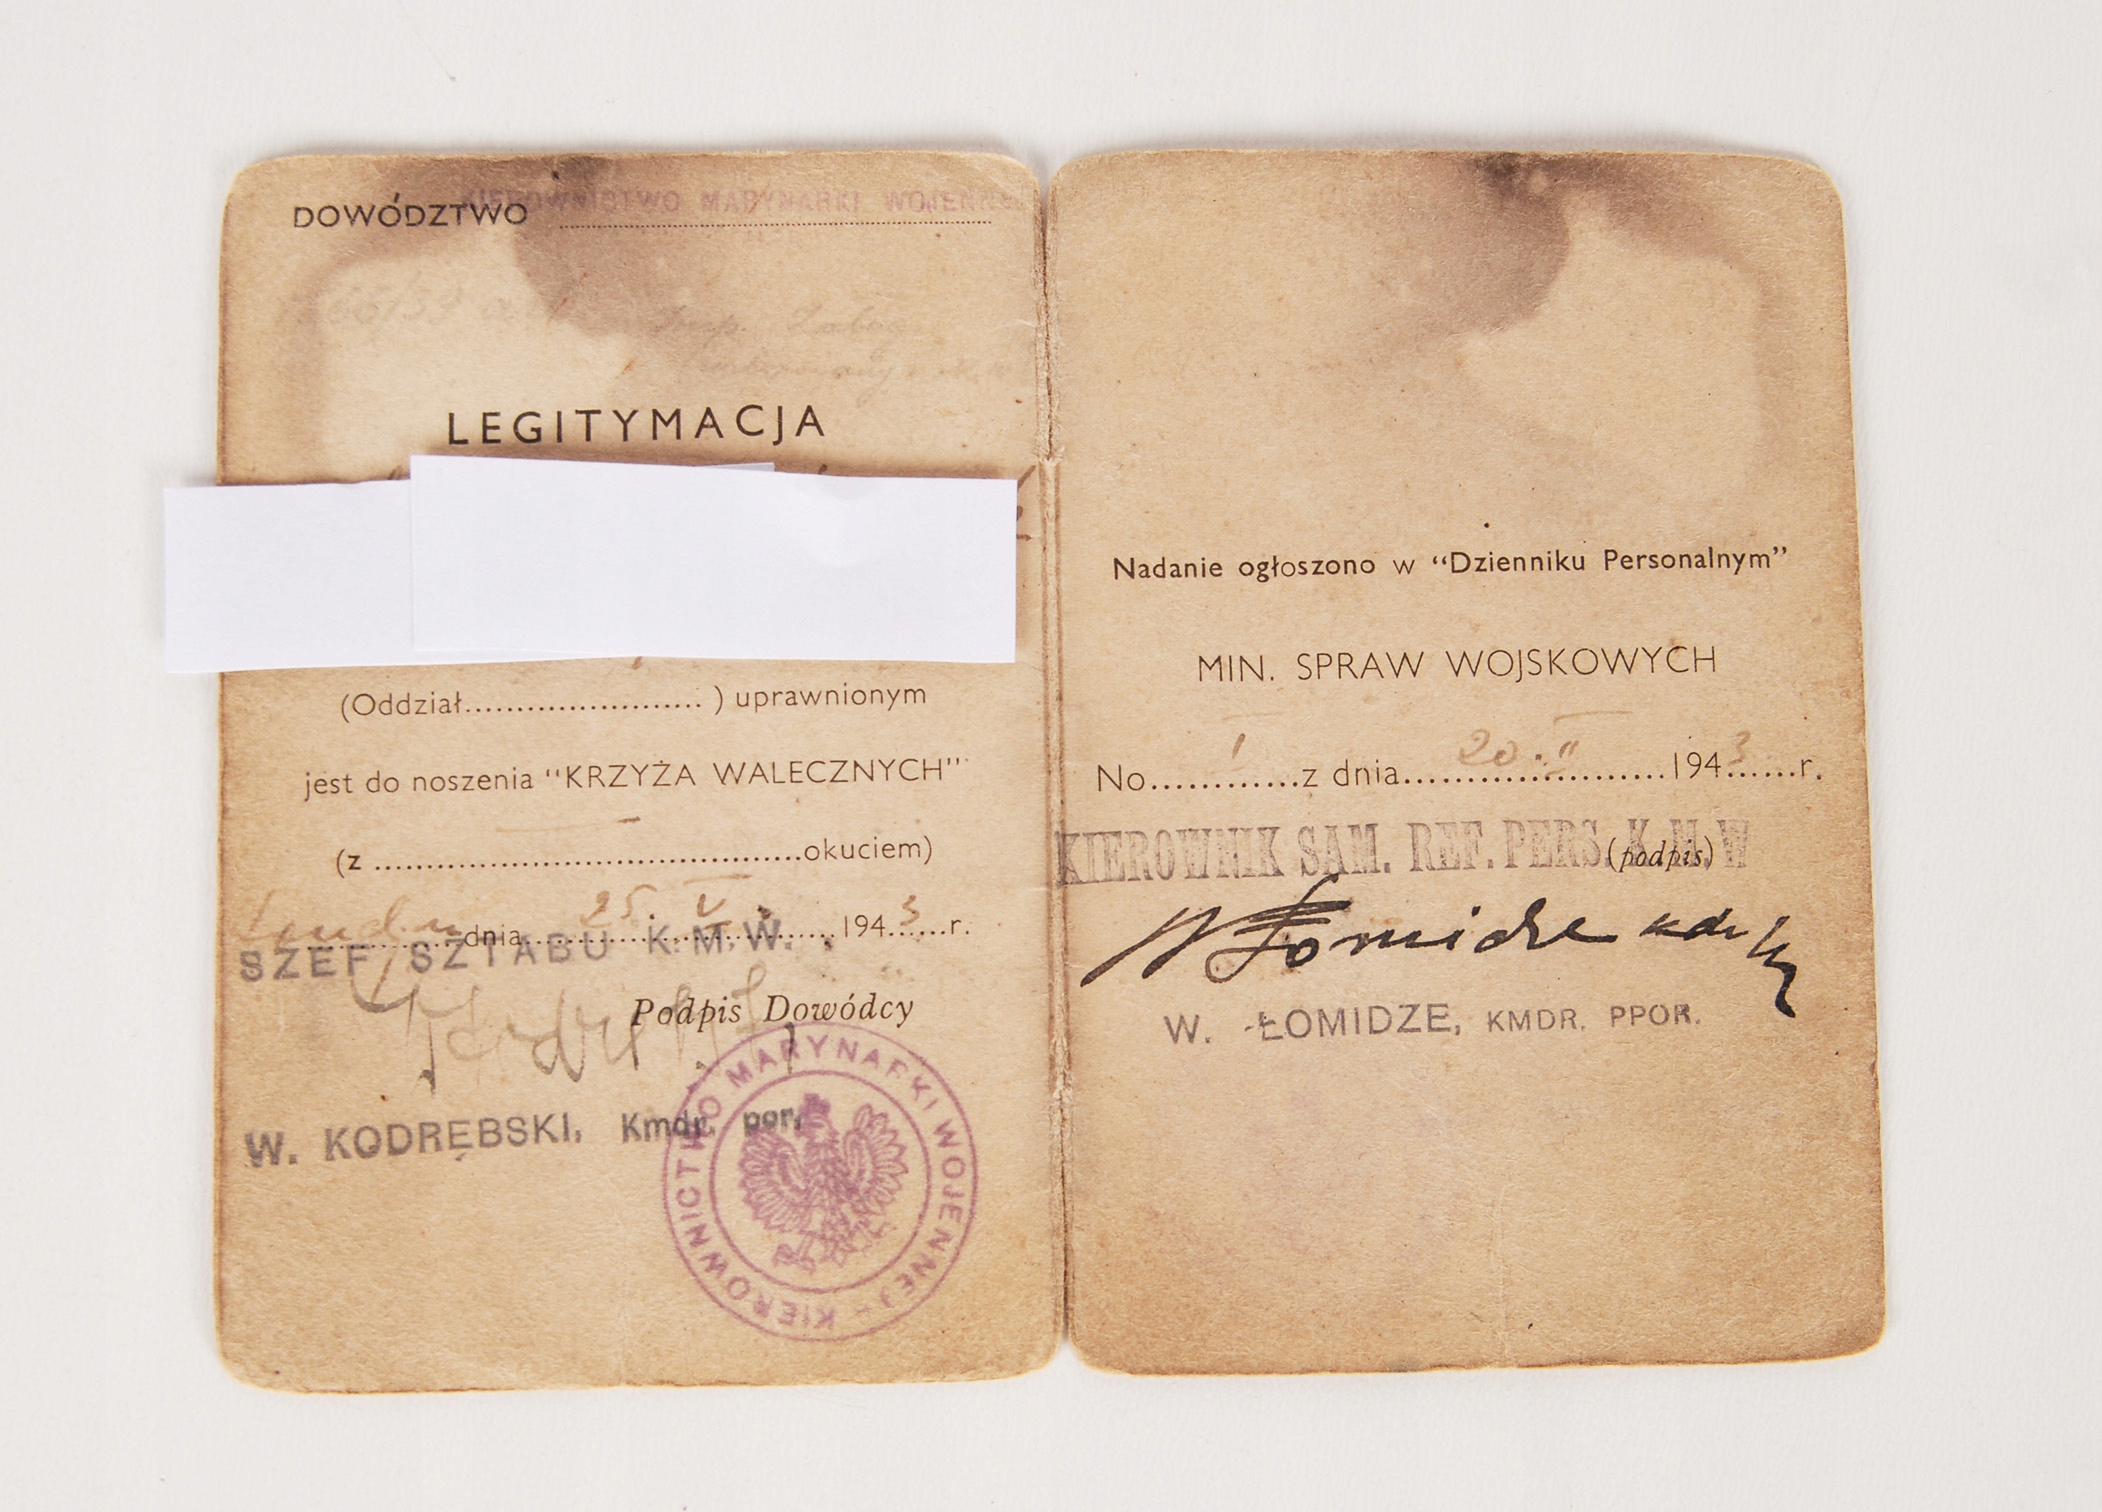 KIEROWNICTWO MARYNARKI WOJENNEJ
DOWÓDZTWO
LEGITYMACJA
(Oddział ) uprawnionym
jest do noszenia "KRZYŻA WALECZNYCH"
(z okuciem)
London dnia 25. V 1943 r.
SZEF SZTABU K.M.W.
Podpis Dowódcy
W. KODRĘBSKI, Kmdr. por.
KIEROWNICTWO MARYNARKI WOJENNEJ
Nadanie ogłoszono w "Dzienniku Personalnym"
MIN. SPRAW WOJSKOWYCH
No 1 z dnia 20. II 1943 r.
KIEROWNIK SAM. REF. PERS. K.M.W
(podpis)
W Łomidze
W. ŁOMIDZE, KMDR. PPOR.